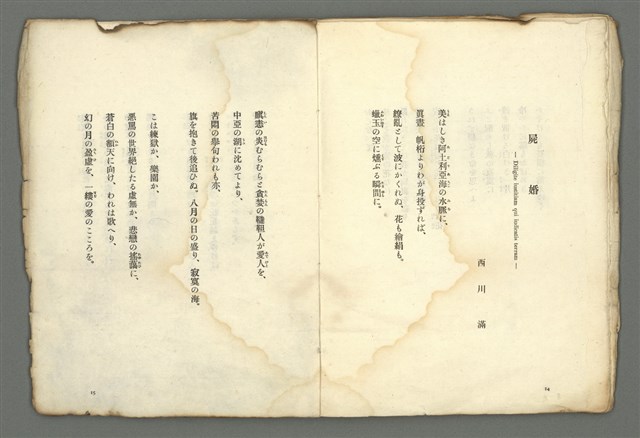 屍婚
— Diligite iustitiam qui iudicatis terram —
西川滿
美はしき阿土利亞海の水脈に、
眞晝 帆桁よりわが身投ずれば、
繚亂として波にかくれぬ、花も繪絹も。
蠟玉の空に燻ぶる瞬間に。
14
瞋恚の炎むらむらと貪婪の韃靼人が愛人を、
中亞の湖に沈めてより、
苦悶の擧句われも亦、
旗を抱きて後追ひぬ。八月の日の盛り、寂寞の海。
こは煉獄か、樂園か、
惡罵の世界絕したる虛無か、悲戀の菩薩に、
蒼白の額天に向け、われは歌へり、
幻の月の盈虛を、一縷の愛のこころを。
15